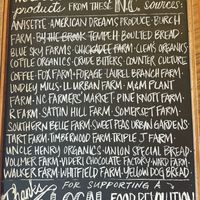 products FROM THESE N.C. SOURCES:
ANISETTE · AMERICAN DREAMS PRODUCE · BURCH
FARM · BY THE BROOK TEMPEH · BOULTED BREAD ·
BLUE SKY FARMS · CHICKADEE FARM · CLEM'S ORGANICS
COTTLE ORGANICS · CRUDE BITTERS · COUNTER CULTURE
COFFEE · FOX FARM · FORAGE · LAUREL BRANCH FARM ·
LINDLEY MILLS · LIL URBAN FARM · M&M PLANT
FARM · NC FARMERS' MARKET · PINE KNOTT FARM ·
FARM · SATIN HILL FARM · SOMERSET FARM ·
SOUTHERN BELLE FARM · SWEET PEAS URBAN GARDENS
TART FARM · TIMBERWOOD FARM · TRIPLE J FARM ·
UNCLE HENRY ORGANICS · UNION SPECIAL BREAD ·
VOLLMER FARM · VIDERI CHOCOLATE FACTORY · WARD FARM ·
WALKER FARM · WHITFIELD FARM · YELLOW DOG BREAD
Thanks FOR SUPPORTING A
LOCAL FOOD REVOLUTION